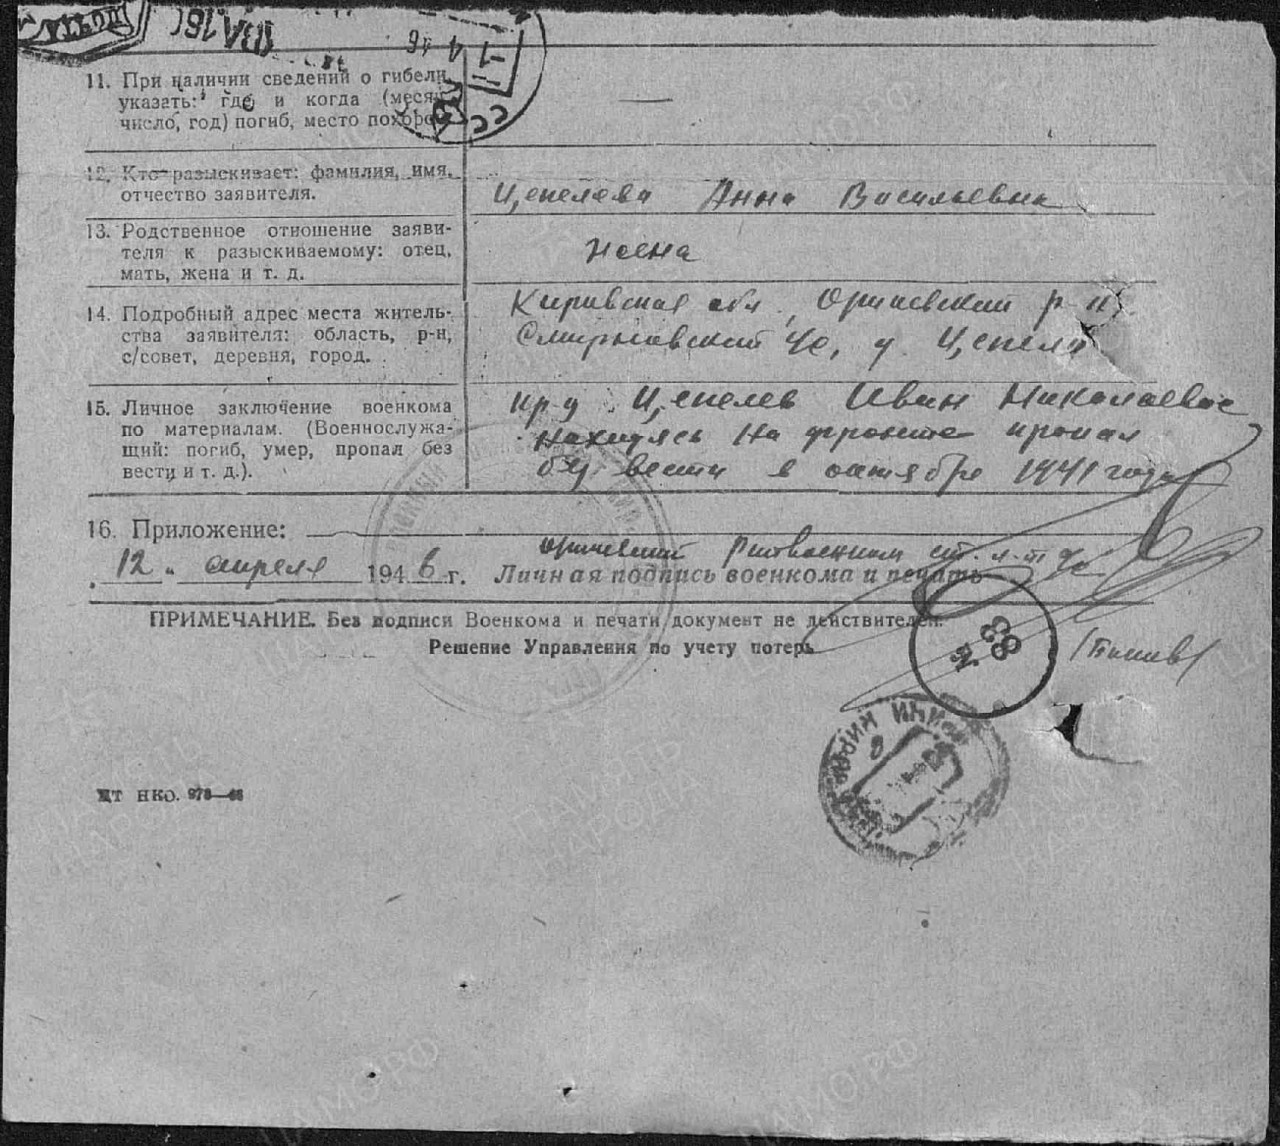 ПОЧТА
11. При наличии сведений о гибели
указать: где и когда (месяц
число, год) погиб, место похорон
—
12. Кто разыскивает: фамилия, имя,
отчество заявителя.
Цепелева Анна Васильевна
13. Родственное отношение заяви-
теля к разыскиваемому: отец,
мать, жена и т. д.
жена
14. Подробный адрес места житель-
ства заявителя: область, р-н,
с/совет, деревня, город.
Кировская обл., Оричевский р-н
Смирновский с/с, д. Цепели
15. Личное заключение военкома
по материалам. (Военнослужа-
щий: погиб, умер, пропал без
вести и т. д.).
кр-ц Цепелев Иван Николаевич
находясь на фронте пропал
без вести в октябре 1941 года
16. Приложение:
Оричевский Райвоенком ст. л-т
12 . апреля 1946 г. Личная подпись военкома и печать
ПРИМЕЧАНИЕ. Без подписи Военкома и печати документ не действителен.
Решение Управления по учету потерь
83
НКО. 978—46
ПАМЯТЬ
НАРОДА
ПАМО.РФ